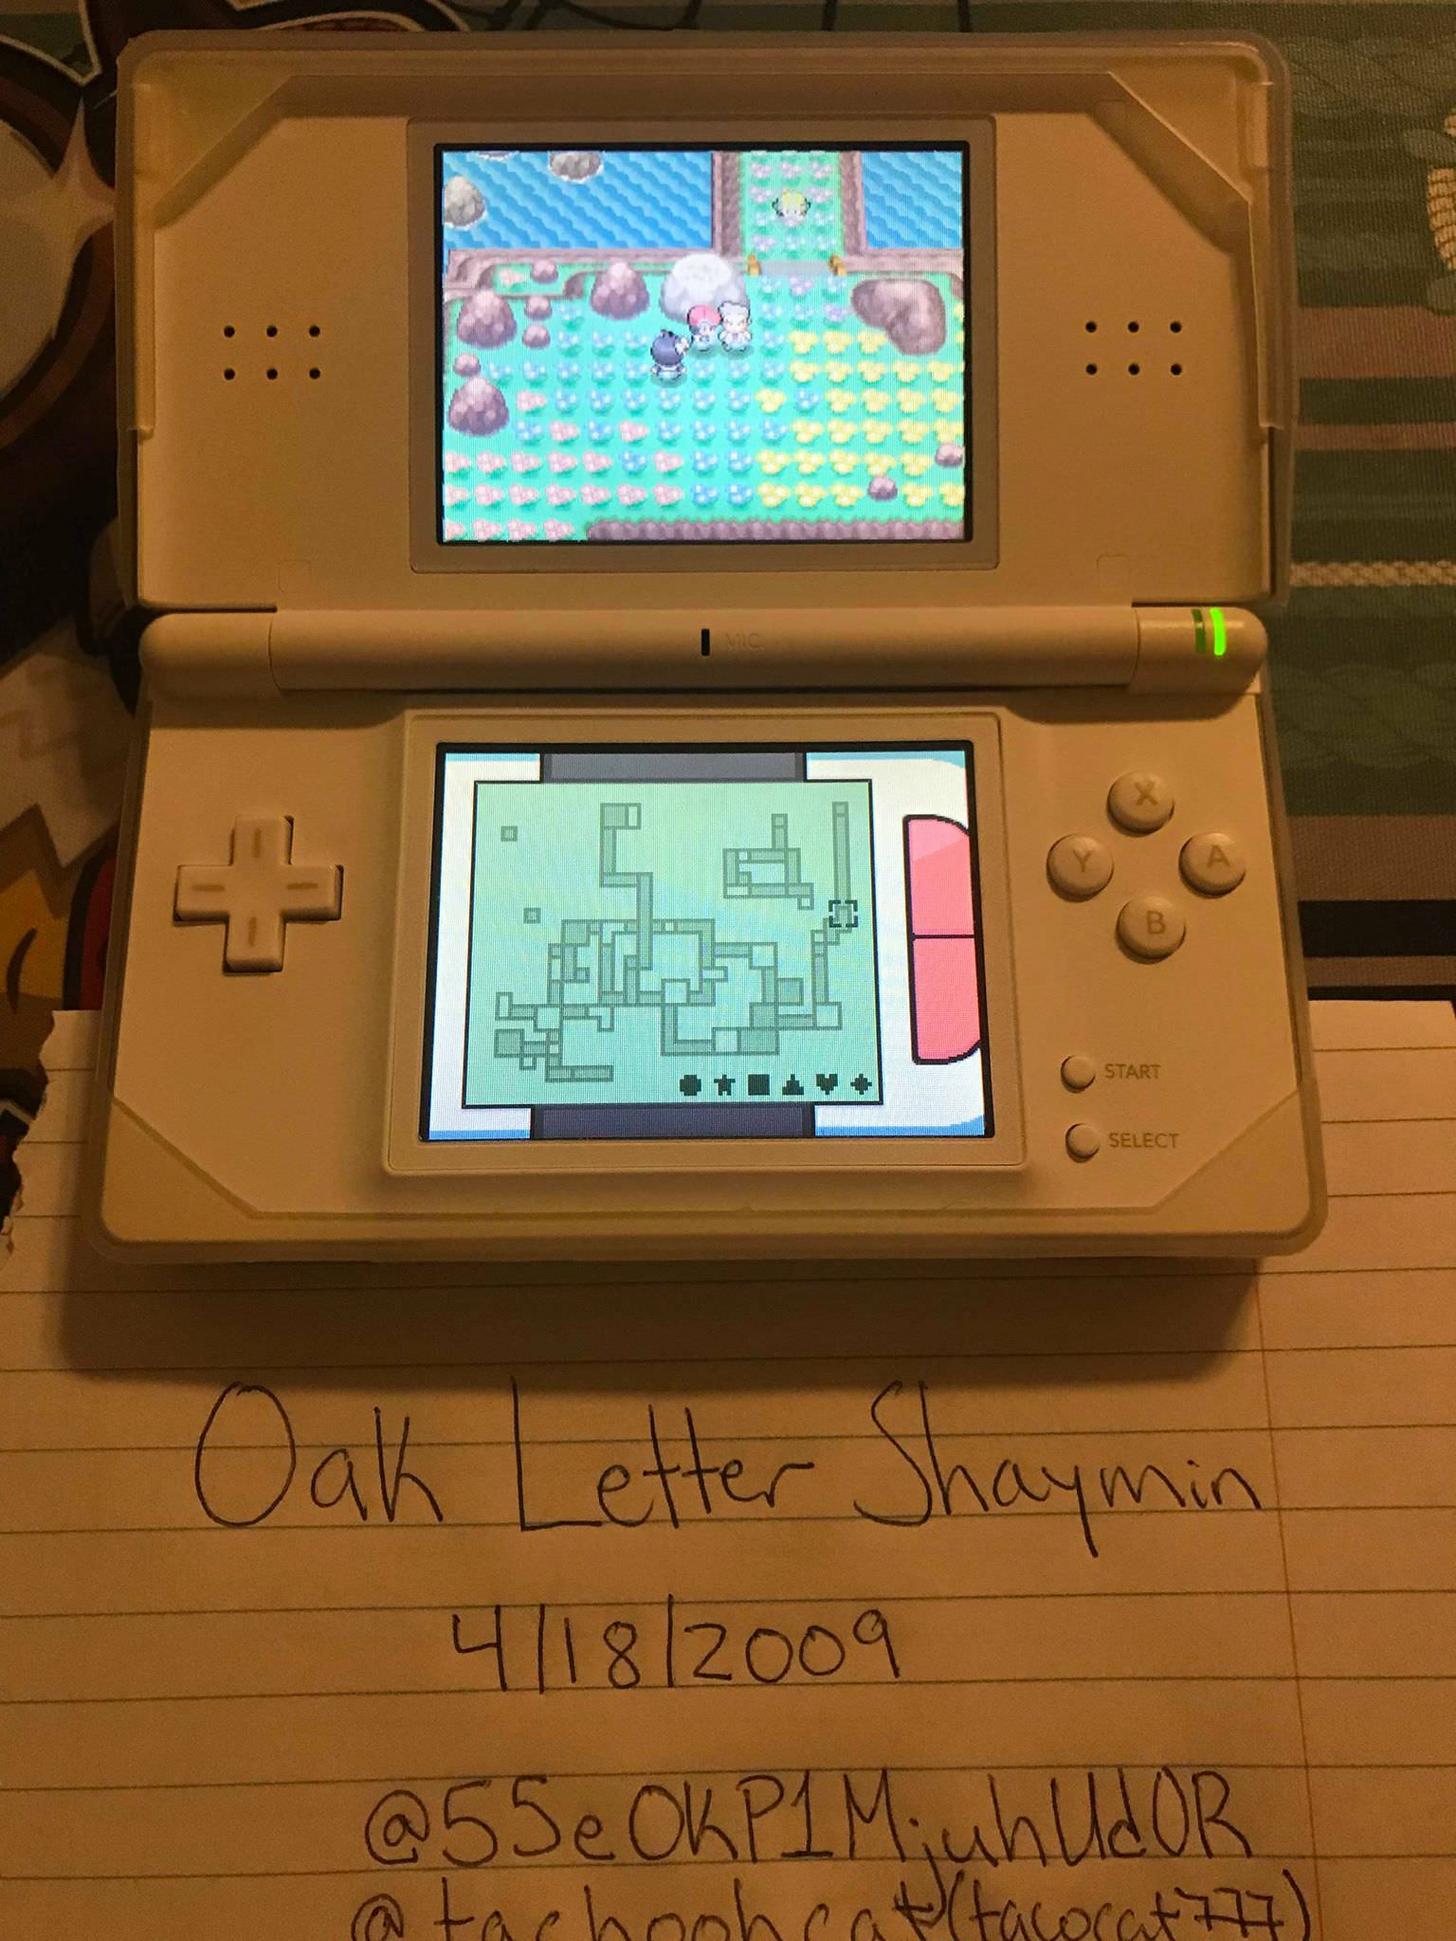 MIC.
X
Y
A
B
START
SELECT
Oak Letter Shaymin
4/18/2009
@55eOKP1MjuhUdOR
@tachoohcat (tacocat777)